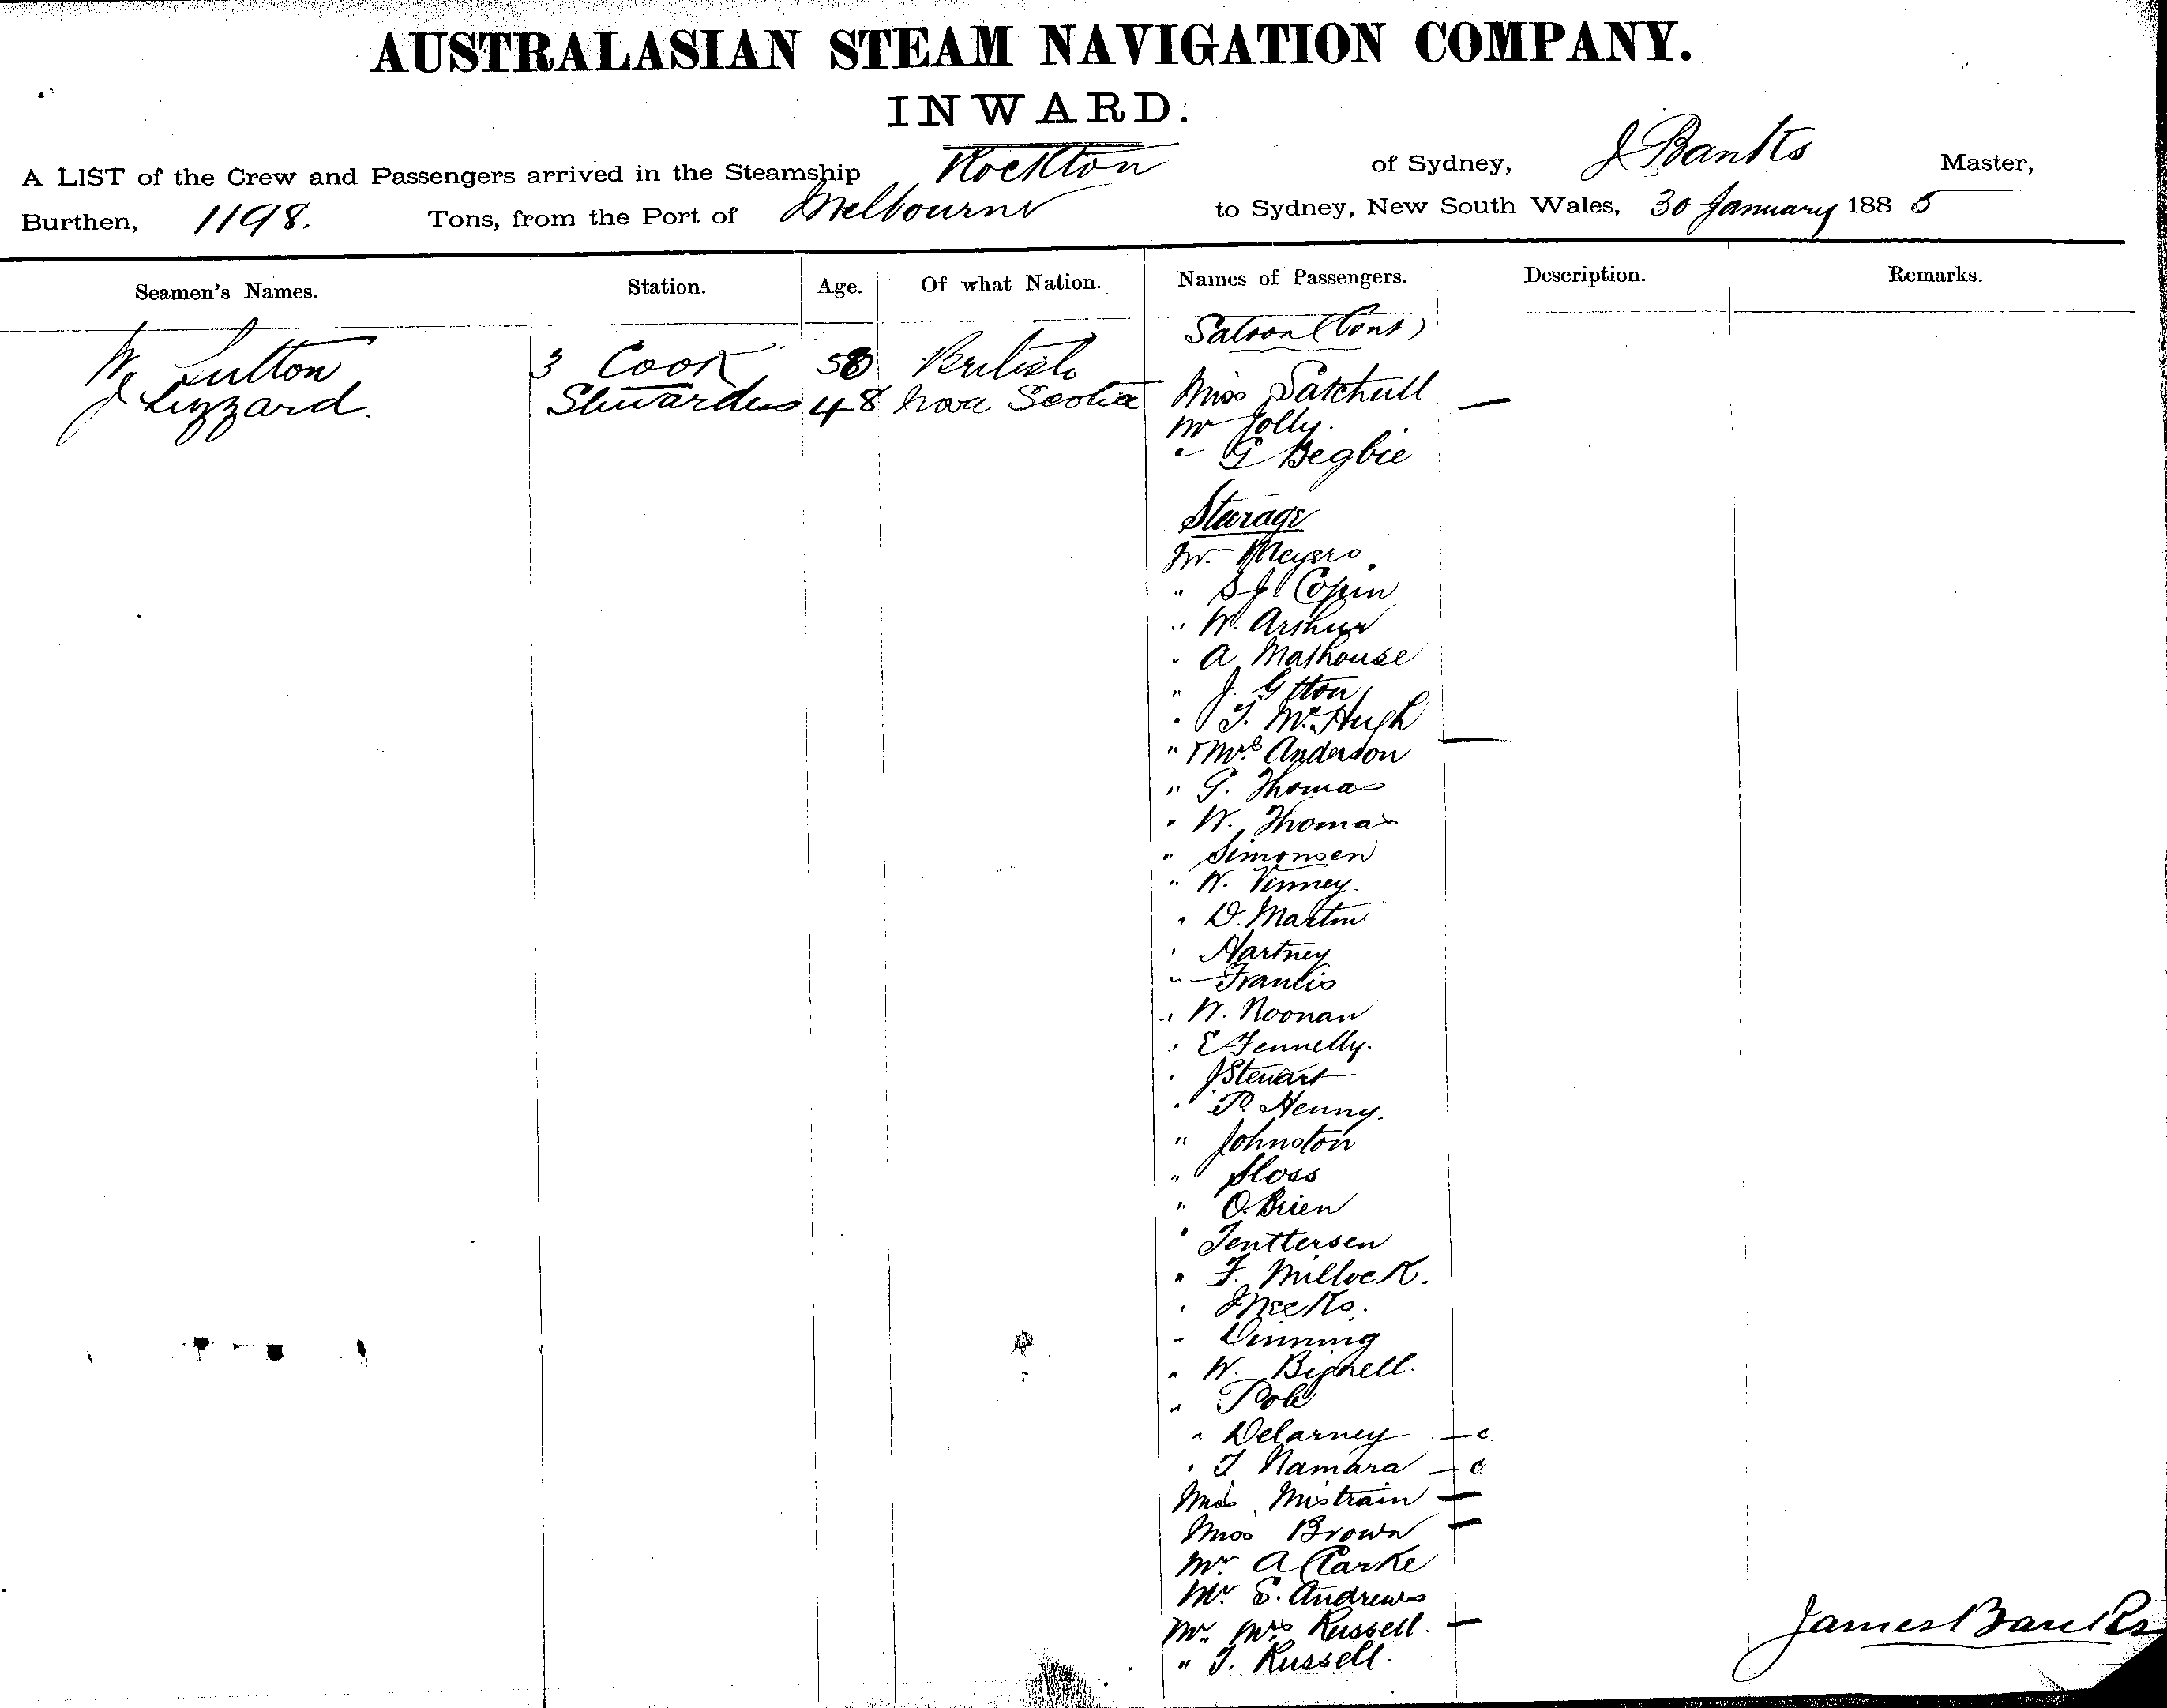 AUSTRALASIAN STEAM NAVIGATION COMPANY.
INWARD.
A LIST of the Crew and Passengers arrived in the Steamship Rockton of Sydney, J Banks Master,
Burthen, 1198. Tons, from the Port of Melbourne to Sydney, New South Wales, 30 January 1885
Seamen's Names. Station. Age. Of what Nation. Names of Passengers. Description. Remarks.
Saloon (Cont)
W Sutton 3 Cook British
J Lizzard. Stewardess 48 Nova Scotia Miss Satchell —
Mr Jolly.
" G Begbie
Steerage
Mr. Meyers.
" S J Copin
" W. Arthur
" A Malhouse
" J. Gitton
" T. McHugh
" & Mrs Anderson —
" G. Thomas
" W. Thomas
" Simonsen
" W. Vinney.
" D. Martin
" Hartney
" Francis
" W. Noonan
" E Fennelly.
" J Stewart
" P. Henny.
" Johnston
" Sloss
" O.Brien
" Jenttersen
" F. Millock.
" Meeks.
" Dinning
" W. Bignell.
" Pole
" Delarney — c.
" T Namara — c.
Mistrain —
Miss Brown —
Mr. A Clarke
Mr. S. Andrews
Mr. Mrs Russell. —
" T. Russell.
James Banks